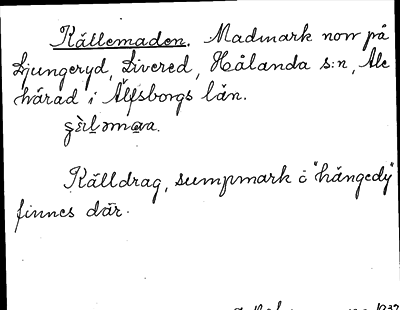 Källemaden. Madmark norr på
Ljungeryd, Livered, Hålanda s:n, Ale
härad i Älfsborgs län.
Källdrag, sumpmark o "hängedy"
finnes där.